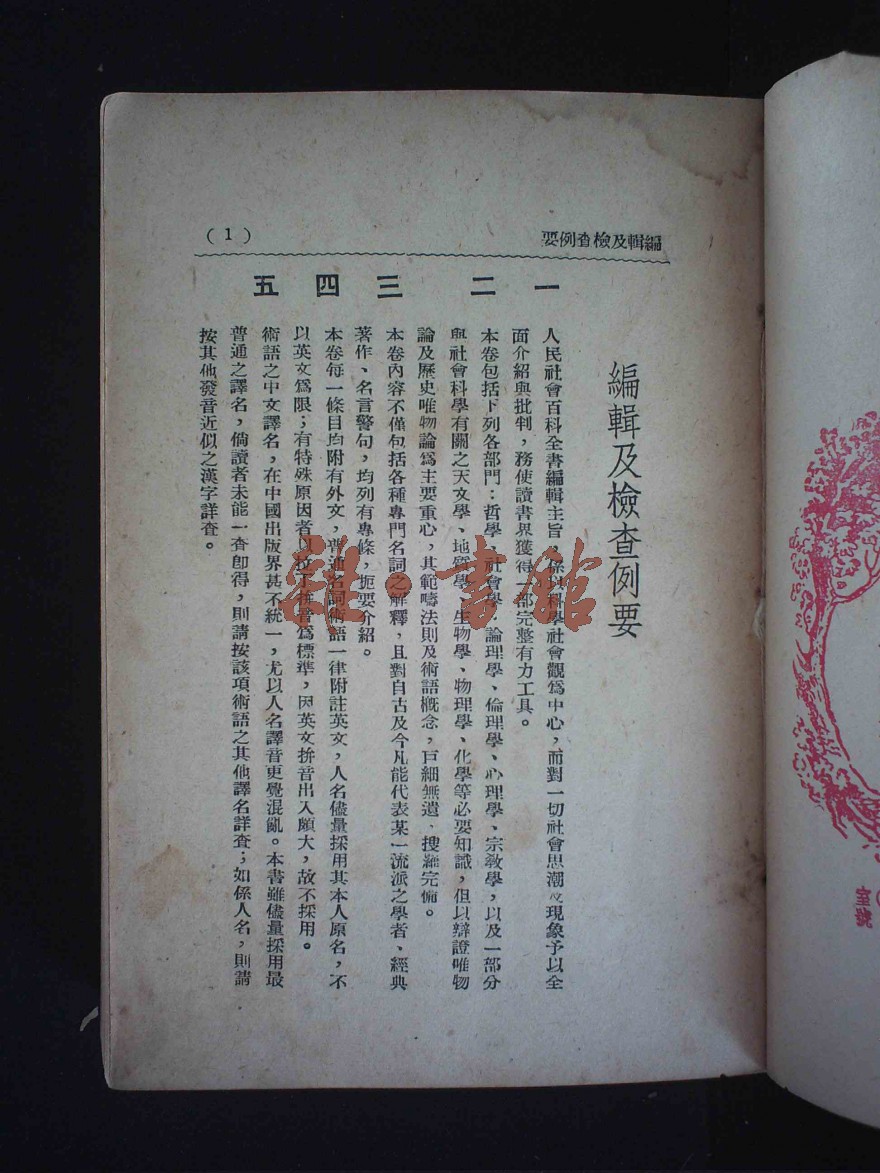 編輯及檢查例要
(1)
編輯及檢查例要
一 人民社會百科全書編輯主旨，係以科學社會觀爲中心，而對一切社會思潮及現象予以全
面介紹與批判，務使讀書界獲得一部完整有力工具。
二 本卷包括下列各部門：哲學、社會學、論理學、倫理學、心理學、宗教學，以及一部分
與社會科學有關之天文學、地質學、生物學、物理學、化學等必要知識，但以辯證唯物
論及歷史唯物論爲主要重心，其範疇法則及術語概念，巨細無遺、搜羅完備。
三 本卷內容不僅包括各種專門名詞之解釋，且對自古及今凡能代表某一流派之學者、經典
著作、名言警句，均列有專條，扼要介紹。
四 本卷每一條目均附有外文，普通名詞術語一律附註英文，人名儘量採用其本人原名，不
以英文爲限；有特殊原因者以拉丁拼音爲標準，因英文拚音出入頗大，故不採用。
五 術語之中文譯名，在中國出版界甚不統一，尤以人名譯音更覺混亂。本書雖儘量採用最
普通之譯名，倘讀者未能一查卽得，則請按該項術語之其他譯名詳查；如係人名，則請
按其他發音近似之漢字詳查。
雜·書館